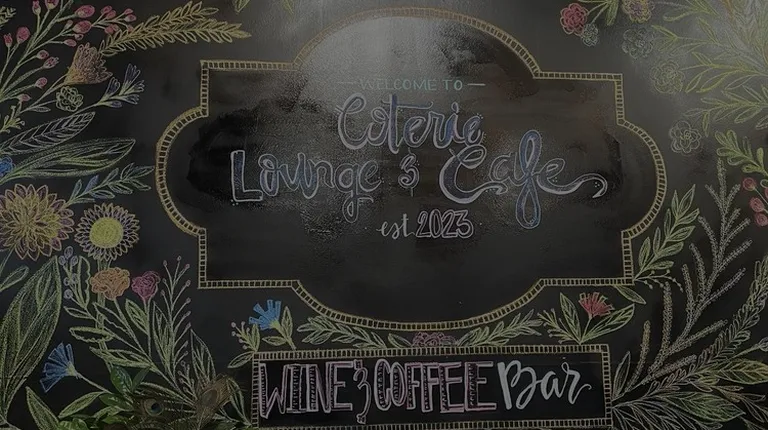 WELCOME TO
Coterie
Lounge & Cafe
est 2023
WINE & COFFEE Bar